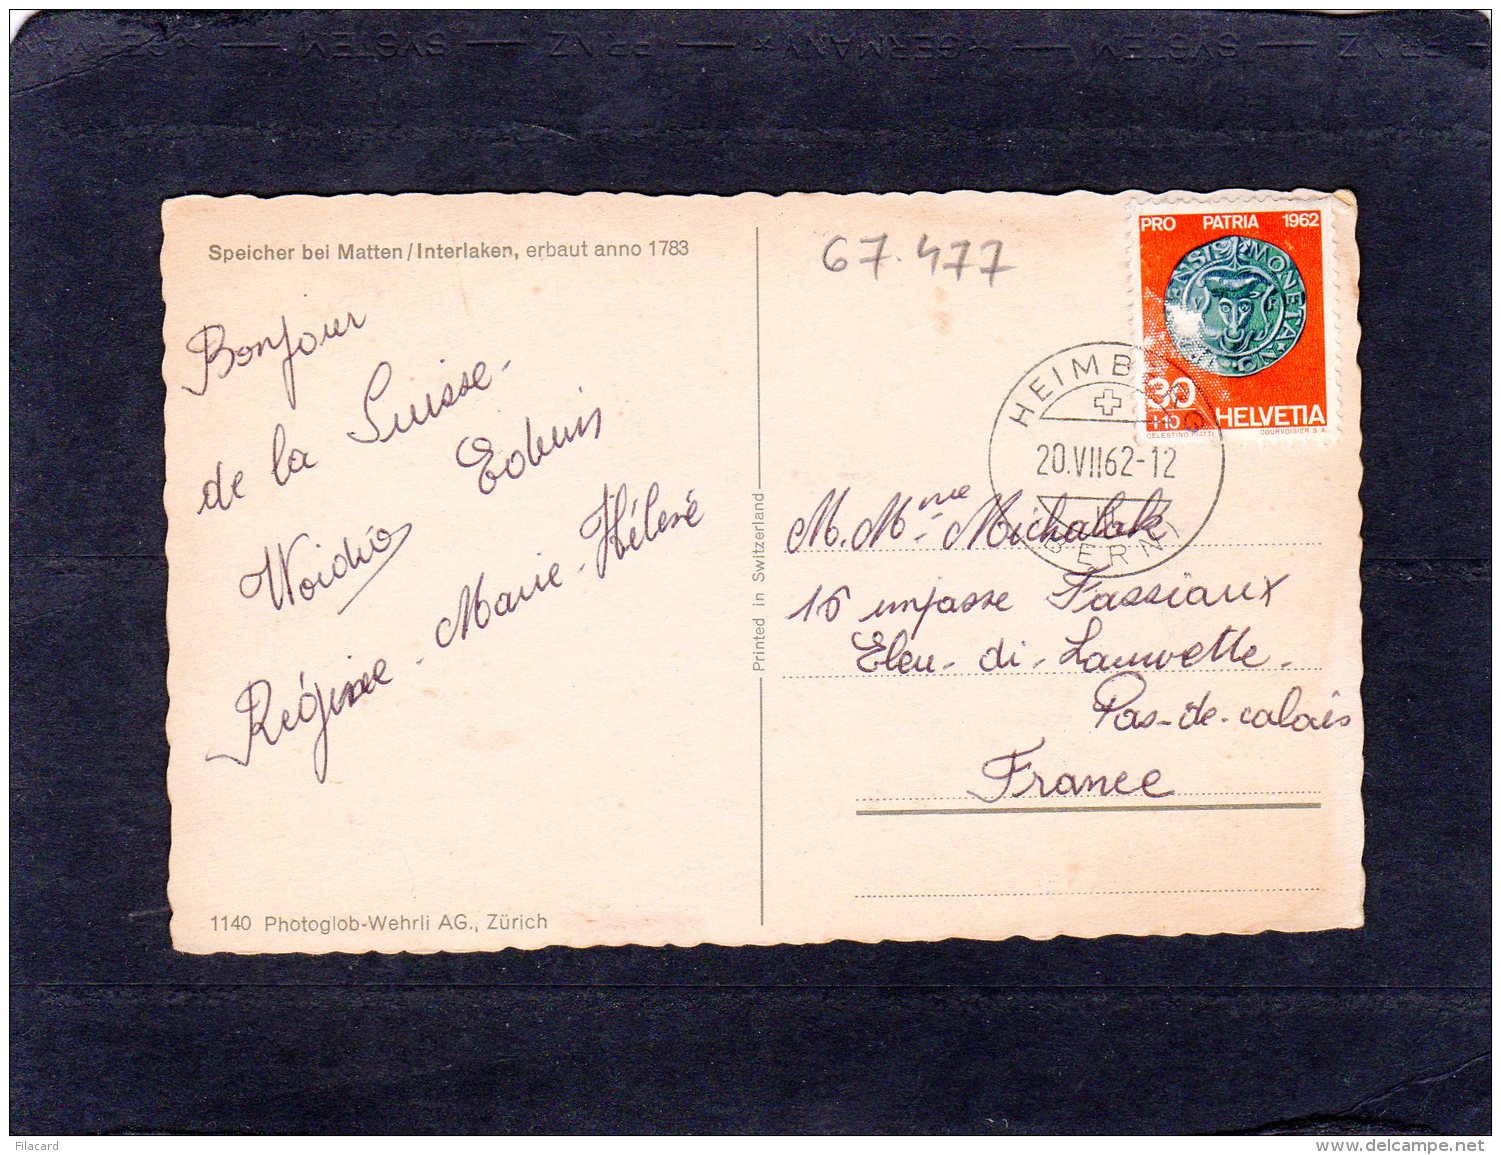 Speicher bei Matten/Interlaken, erbaut anno 1783
Bonjour
de la Suisse -
Edwis
Woidio
Régine - Marie - Hélène
1140 Photoglob-Wehrli AG., Zürich
Printed in Switzerland
67.477
PRO PATRIA 1962
MONETA
30
+10
HELVETIA
CELESTINO PIATTI
COURVOISIER S.A.
HEIMBERG
20.VII62-12
(BERN)
M. Mme Michalak
16 impasse Fassiaux
Eleu - di - Lauwette.
Pas-de-calais
France
SYSTEM — PRVZ — *GERMANY* — SYSTEM — PRVZ
Filacard
www.delcampe.net